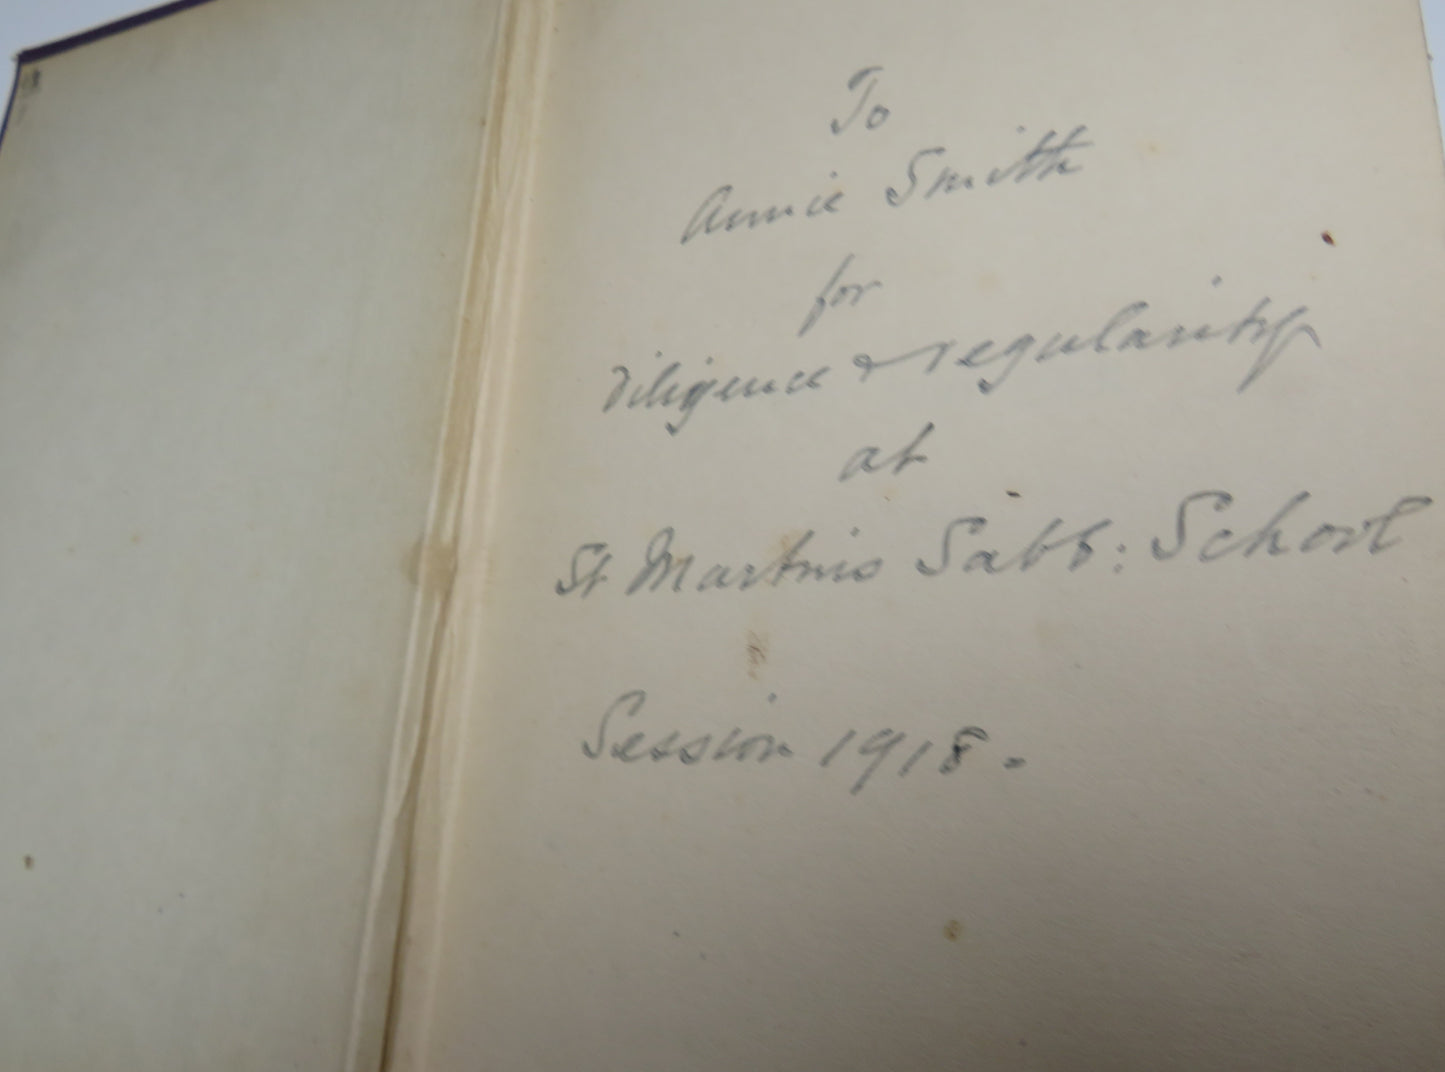 To
Annie Smith
for
Diligence & regularity
at
St Martins Sabb: School
Session 1918.